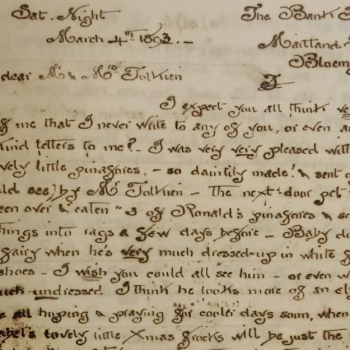 Sat. Night The Bank
March 4th 1893. - Maitland
Bloem
dear Mr & Mrs Tolkien
I expect you all think ve
of me that I never write to any of you, or even an
kind letters to me? - I was very very pleased with
vely little pinafores. - so daintily made. & sent o
ld see) by Mrs Tolkien - The next-door pet
een over & eaten " 3 of Ronald's pinafores & s
things into rags a few days before - Baby do
fairy when he's very much dressed-up in white f
shoes - I wish you could all see him - or even w
uch undressed. I think he looks more of an el
e all hoping & praying for cooler days soon, when
abel's lovely little Xmas frocks will be just the